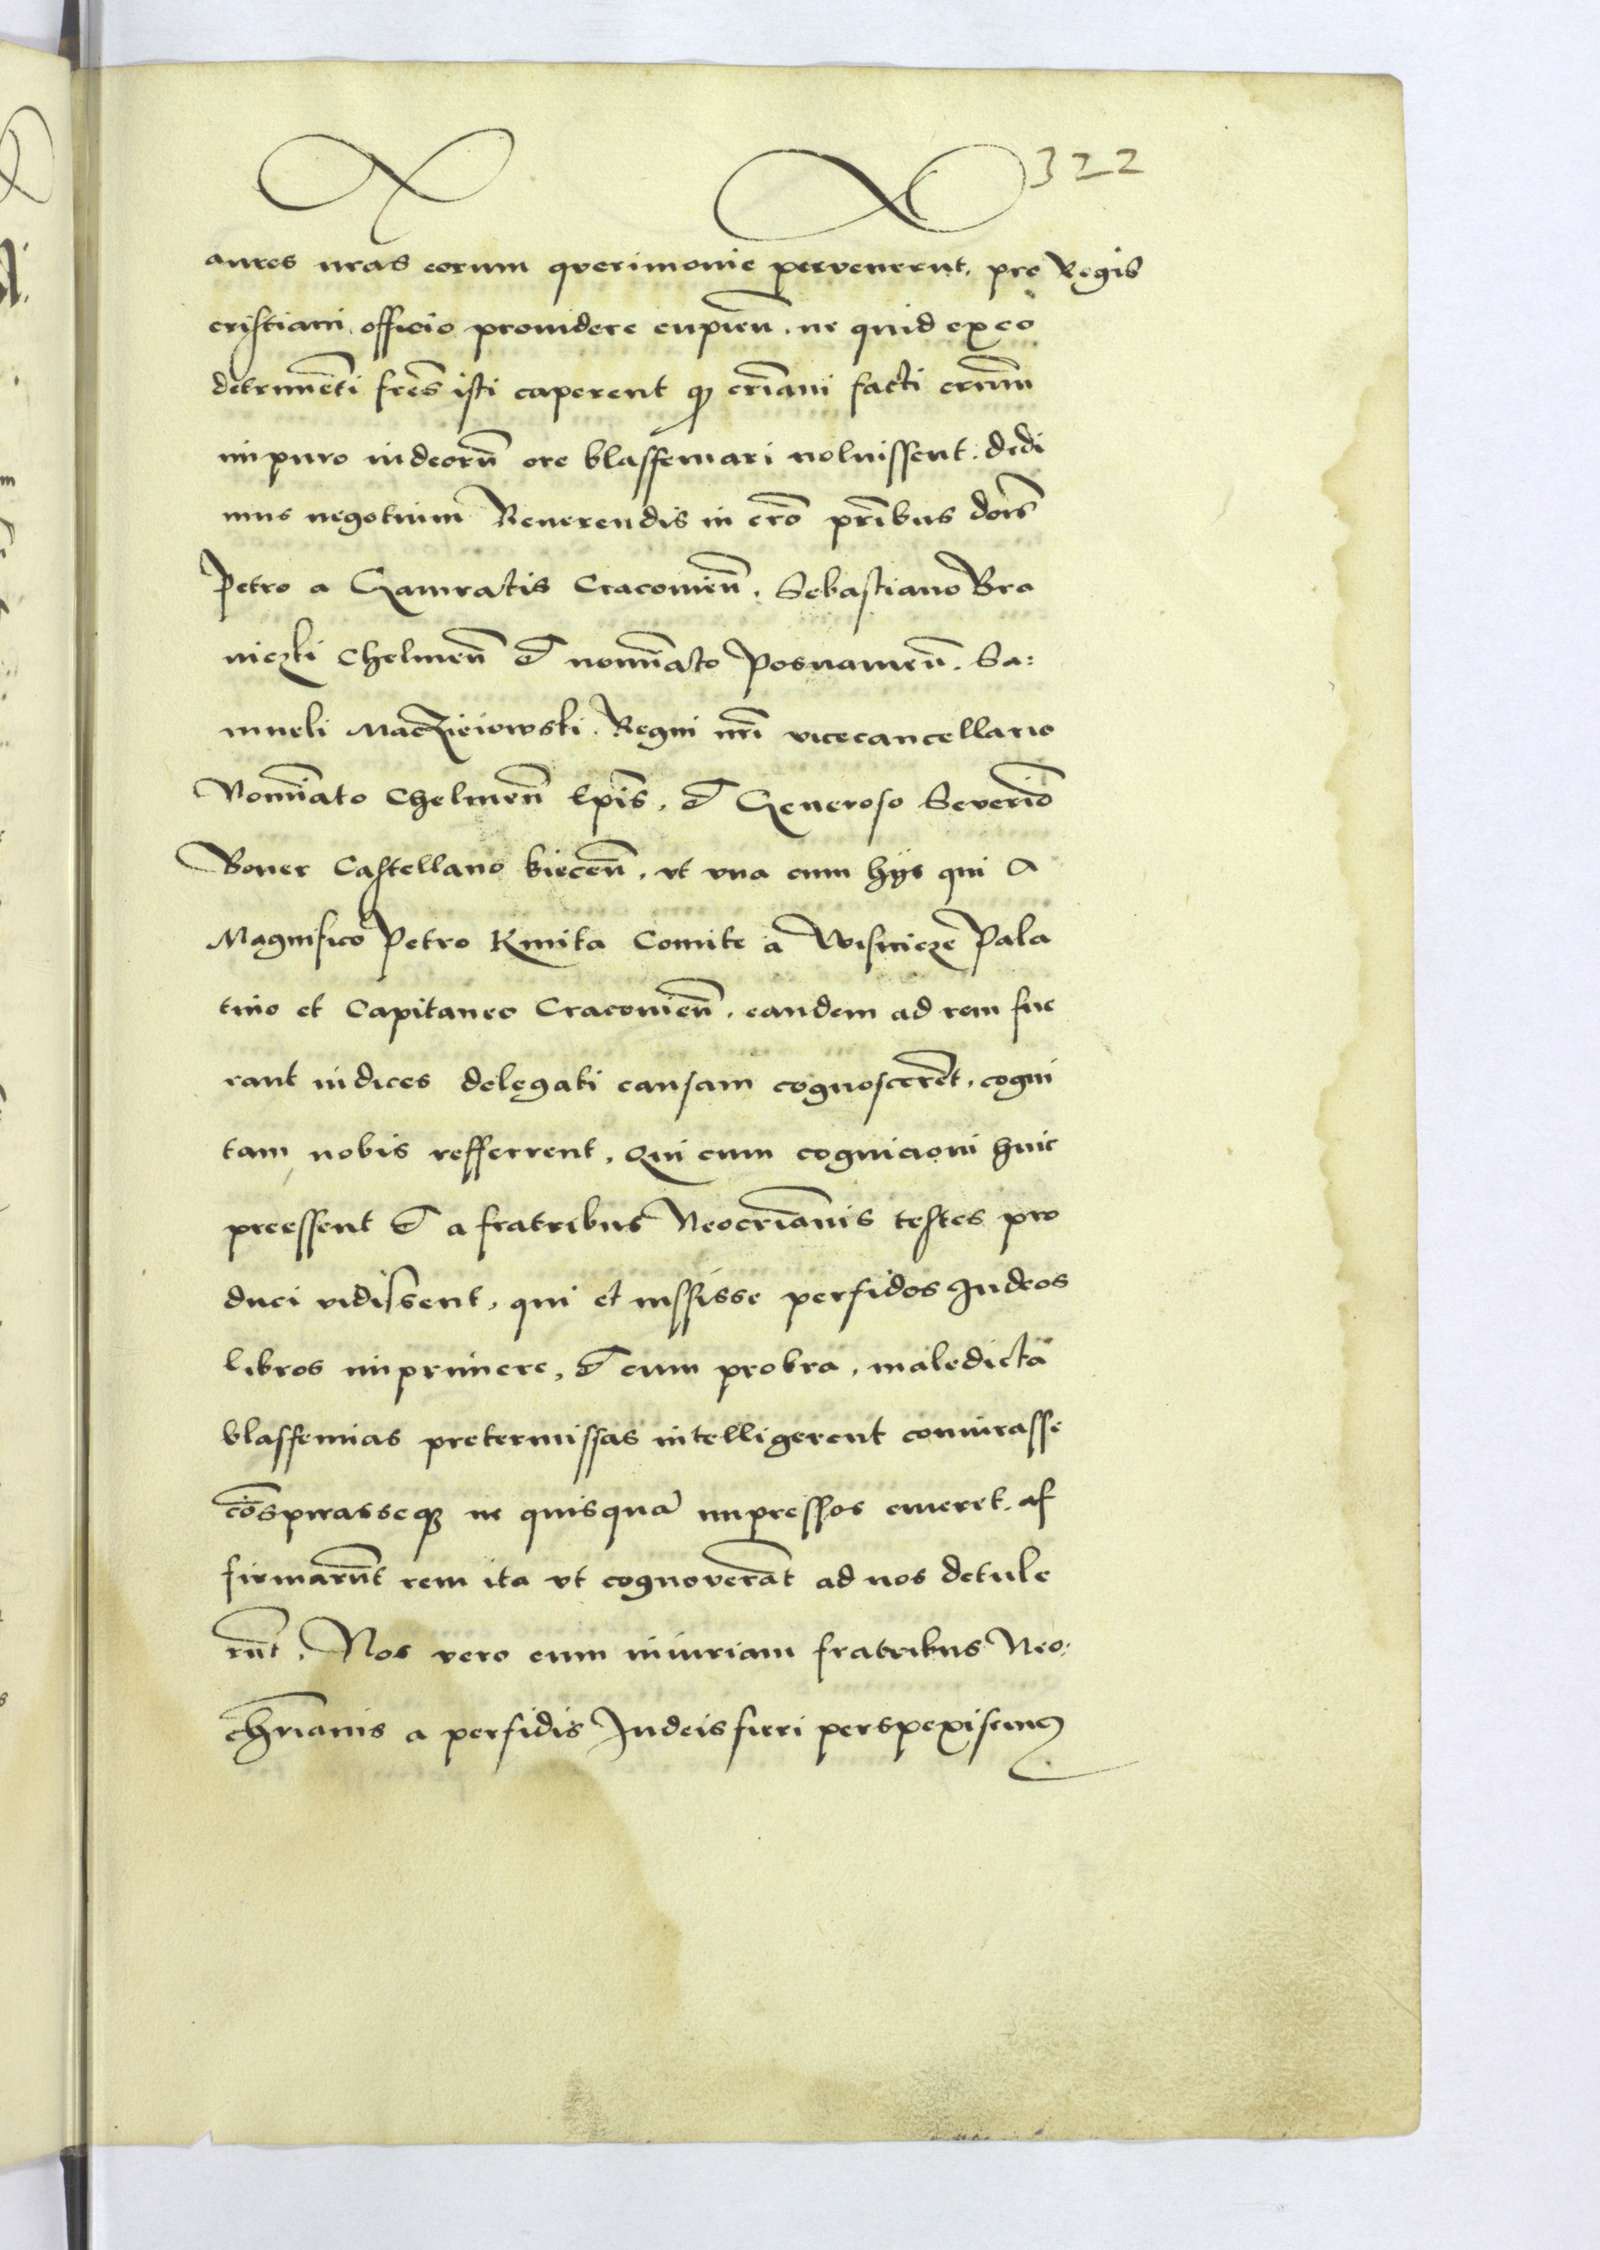 322
aures nras eorum querimonie pervenerunt, pro Regis
cristiani officio providere cupien̄. ne quid ex eo
detrimēti frēs isti caperent qᷓ cr̄iani facti cr̄um
impuro iudeorū ore blasfemari noluissent. dedi
mus negotium Reverendis in cr̄o pr̄ibus don̄s
Petro a Gamratis Cracovien̄. Sebastiano Bra
niczki Chelmen̄ et nom̄iato Posnanien̄. Sa:
mueli Maczieiowski Regni nr̄i vicecancellario
Nom̄iato Chelmen̄ Ep̄is, et Generoso Severīo
Boner Castellano biecen̄, vt vna cum hÿs qui A
Magnifico Petro Kmita Comite a Wisnicze Pala
tino et Capitaneo Cracovien̄. eandem ad rem fue
rant iudices delegati causam cognoscerēt, cogni
tam nobis refferrent, Qui cum cognicioni huic
preessent et a fratribus Neocr̄ianis testes pro
duci vidissent, qui et iussisse perfidos Iudeos
libros imprimere, et cum probra, maledicta
blasfemias pretermissas intelligerent coniurasse
cōspirasseqȝ ne quisquā impressos emeret, af
firmarūt rem ita vt cognoverāt ad nos detule
rūt, Nos vero cum iniuriam fratribus Neo:
chr̄ianis a perfidis Iudeis fieri perspexissemꝰ